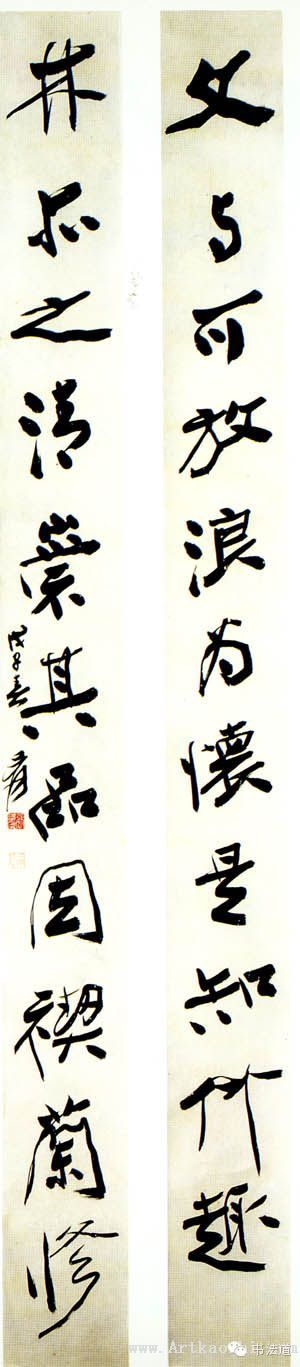 文与可放浪为懷是知竹趣
林亦之清其品因禊蘭修
戊子春 爰
www.Artkao
书法道